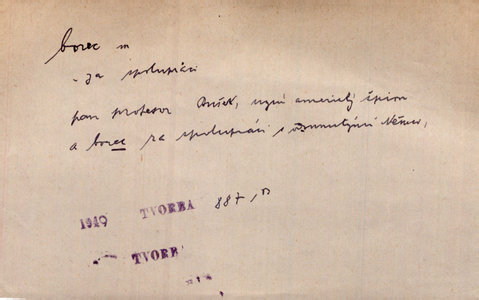 borec m
- za spolupráci
pan profesor Bušek, nyní americký špion
a borec za spolupráci s Němci,
1949 TVORBA 887,
TVORB